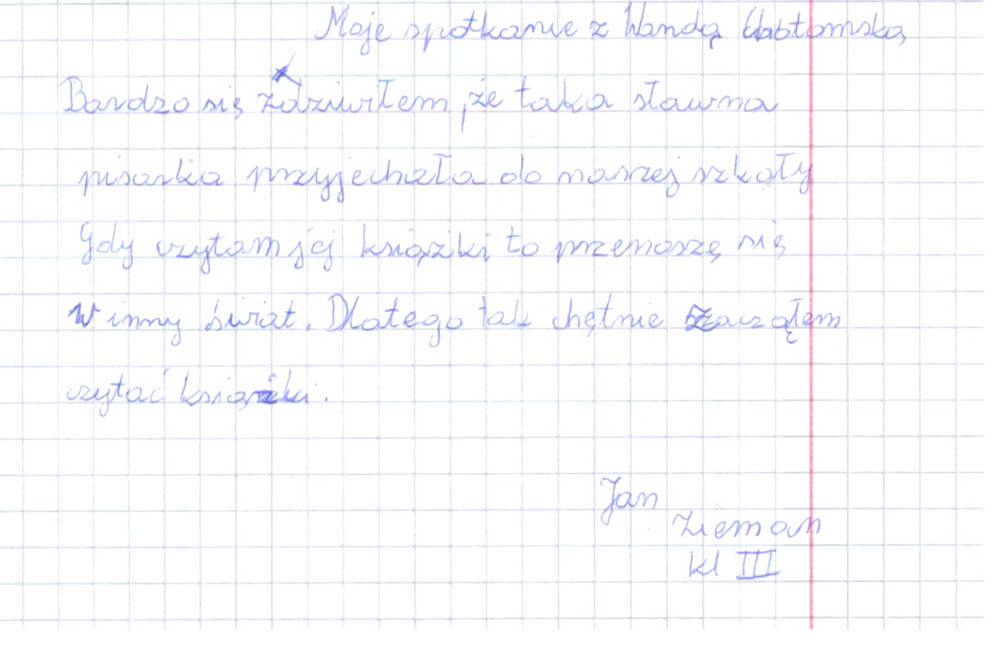 Moje spotkanie z Wandą Chotomską
Bardzo się zdziwiłem, że taka sławna
pisarka przyjechała do naszej szkoły
Gdy czytam jej książki to przenoszę się
w inny świat. Dlatego tak chętnie zacząłem
czytać książki.
Jan
Zieman
kl III